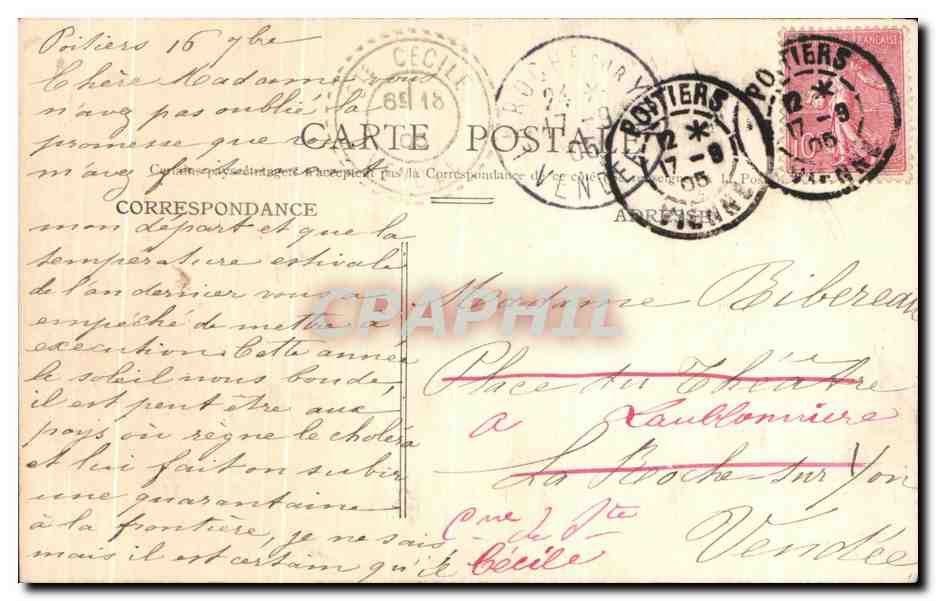 Poitiers 16 7bre
Chère Madame vous
n'avez pas oublié la
promesse que vous
m'avez faite
CARTE POSTALE
Certains pays étrangers n'acceptent pas la Correspondance de ce côté
CORRESPONDANCE
ADRESSE
mon départ et que la
température estivale
de l'an dernier vous a
empêché de mettre à
exécution. Cette année
le soleil nous boude,
il est peut être aux
pays où règne le choléra
et lui fait on subir
une quarantaine
à la frontière, je ne sais
mais il est certain qu'il
Madame Bibereau
Place du Théâtre
a Laublonniere
La Roche-sur-Yon
Cne de Ste
Cécile
Vendée
CECILE
ROCHE SUR YON
24 *
17 -9
05
VENDEE
POITIERS
12 *
17 -9
05
VIENNE
POITIERS
12 *
17 -9
05
VIENNE
FRANÇAISE
10
CPAPHIL